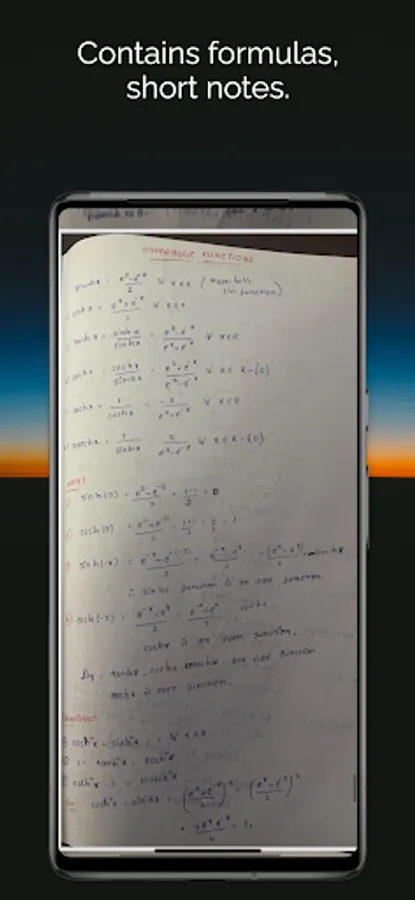 Contains formulas,
short notes.
HYPERBOLIC FUNCTIONS
sinhx = e^x - e^-x / 2 ∀ x∈R ( hyperbolic sin function)
coshx = e^x + e^-x / 2 ∀ x∈R
tanhx = sinhx / coshx = e^x - e^-x / e^x + e^-x ∀ x∈R
cothx = coshx / sinhx = e^x + e^-x / e^x - e^-x ∀ x∈ R-{0}
sechx = 1 / coshx = 2 / ∀ x∈R
1 / sinhx = 2 / e^x - e^-x ∀ x∈R-{0}
sinh(0) = e^0 - e^-0 / 2 = 1-1 / 2 = 0
cosh(0) = e^0 + e^-0 / 2 = 1+1 / 2 = 2 / 2 = 1
sinh(-x) = e^-x - e^-(-x) / 2 = e^-x - e^x / 2 = -(e^x - e^-x) / 2 = -sinhx
∴ sinhx function is an odd function.
cosh(-x) = e^-x + e^x / 2 = e^x + e^-x / 2 = coshx
coshx is an even function.
tanhx, cothx, are odd function
sechx is even function.
cosh²x - sinh²x = 1 ∀ x∈R
1 - tanh²x = sech²x
coth²x - 1 = cosech²x
cosh²x - sinh²x = (e^x + e^-x / 2)² - (e^x - e^-x / 2)²
= 4e^x e^-x / 4 = 1.